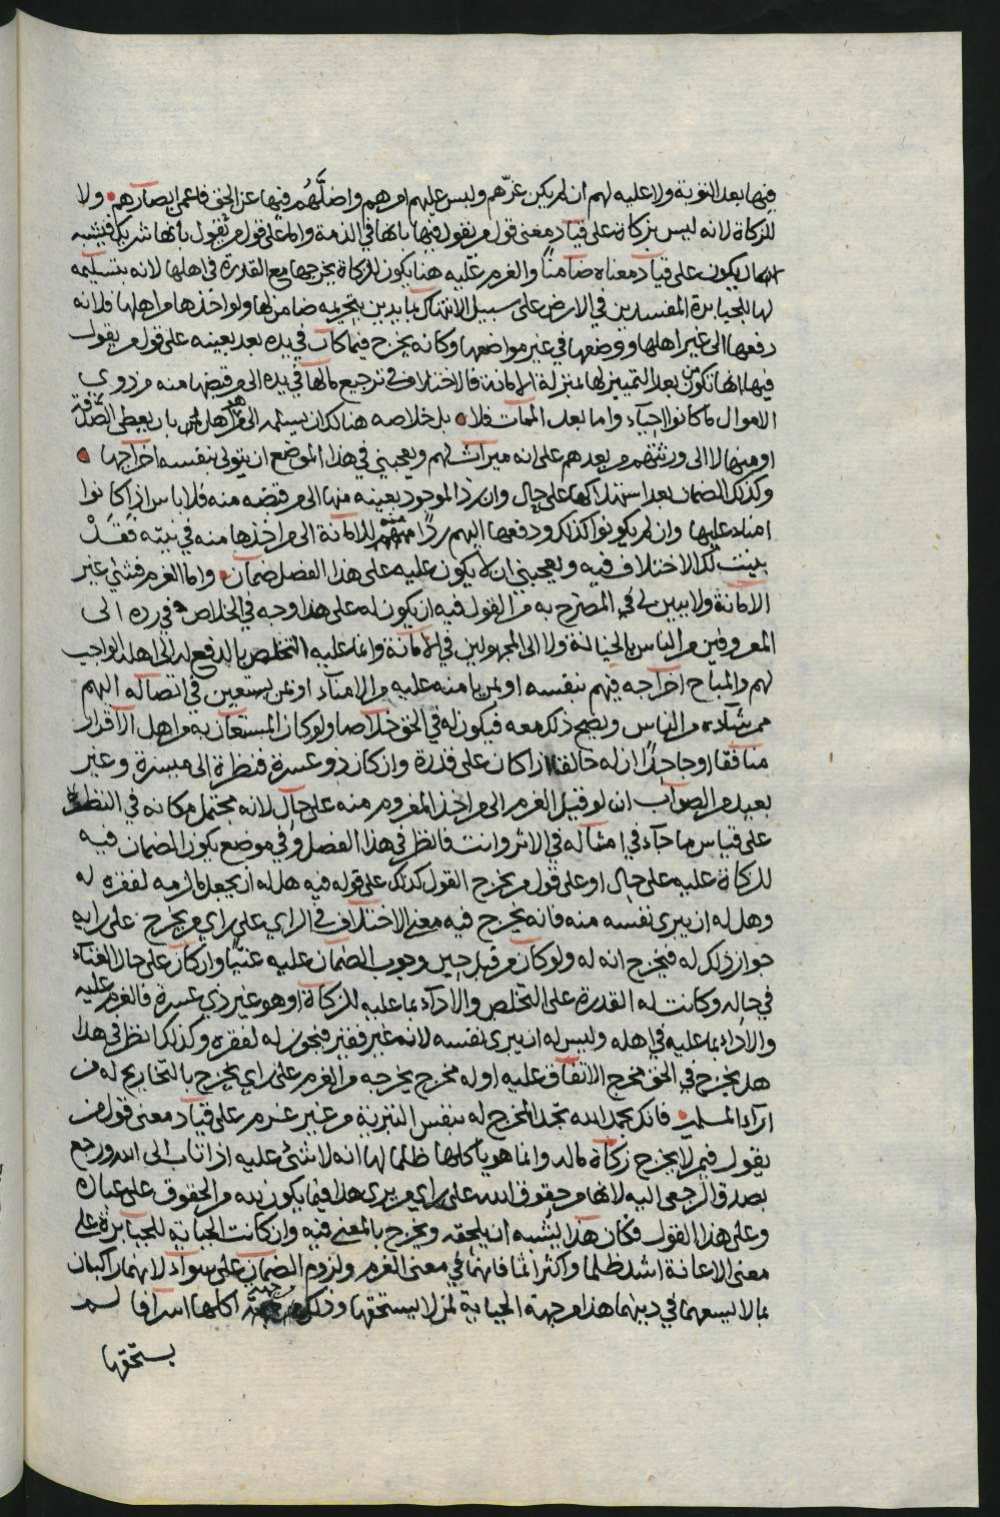 فيها بعد التوبة ولا عليه لهم ان لم يكن غرهم ولبس عليهم امرهم واضلهم فيها عن الحق فاعمى ابصارهم ولا
للزكاة لانه ليس بزكاة على قياد معنى قول من يقول فيها بانها في الذمة واما على قول من يقول بانها شريك فيشبه
ان يكون على قياد معناه ضامنا والغرم عليه هنا يكون للزكاة يخرجها مع القدرة في اهلها لانه بتسليمه
لها للجبابرة المفسدين في الارض على سبيل الانتهاك لما يدين بتحريمه ضامن لها ولو اخذها من اهلها فلانه
دفعها الى غير اهلها ووضعها في غير مواضعها وكانه يخرج فيما كان في يده بعد بعينه على قول من يقول
فيها انها تكون من بعد التمييز لها بمنزلة الامانة فالاختلاف في ترجيع ما لها في يده الى من قبضها منه من ذوي
الاموال ما كانوا احياء واما بعد الممات فلا بل خلاصه هنالك ان يسلمه الى من هو اهل بان يعطى الصدقة
او منها لا الى ورثتهم من بعدهم على انه ميراث لهم ويعجبني في هذا الموضع ان يتولى بنفسه اخراجها
وكذلك الضمان بعد استهلاكها على حال وان رد الموجود بعينه منها الى من قبضه منه فلا باس اذا كانوا
امناء عليها وان لم يكونوا كذلك ودفعها اليهم ردا منهم للامانة الى من اخذها منه في نيته فقد
بينت لك الاختلاف فيه ويعجبني ان لا يكون عليه على هذا الفصل ضمان واما الغرم فشيء غير
الامانة ولا يبين لي في المصرح به من القول فيه ان يكون له على هذا وجه في الخلاص في رده الى
المعروفين من الناس بالخيانة ولا الى المجهولين في الامانة وانما عليه التخلص بالدفع له الى اهله الواجب
لهم والمباح اخراجه فيهم بنفسه او بمن يامنه عليه من الامناء او بمن يستعين في ايصاله اليهم
ممن شاء من الناس ويصح ذلك معه فيكون له في الحق خلاصا ولو كان المستعان به من اهل الاقرار
منافقا او جاحدا ان له خالفا اذا كان على قدرة وان كان ذو عسرة فنظرة الى ميسرة وغير
بعيد من الصواب ان لو قيل الغرم الى من اخذ المغروم منه على حال لانه محتمل مكانه في النظر
على قياس ما جاء في امثاله في الاثر وانت فانظر في هذا الفصل وفي موضع يكون الضمان فيه
للزكاة عليه على حال او على قول من يخرج القول كذلك على قوله فيه هل له ان يجعل ما لزمه لفقره له
وهل له ان يبري نفسه منه فانه يخرج فيه معنى الاختلاف في الراي على راي من يخرج على رايه
جواز ذلك له فيخرج انه له ولو كان من قبل حين وجوب الضمان عليه غنيا وان كان على حال الغناء
في حاله وكانت له القدرة على التخلص والاداء بما عليه للزكاة او هو غير ذي عسرة فالغرم عليه
والاداء بما عليه في اهله وليس له ان يبري نفسه لانه غير فقير فيجوز له لفقره وكذلك انظر في هذا
هل يخرج في الحق مخرج الاتفاق عليه او له مخرج يخرجه من الغرم على راي يخرج بالتخاريج له من
اراء المسلمين فانك بحمد الله تجد المخرج له بنفس التبرية من غير غرم على قياد معنى قول من
يقول فيمن لا يخرج زكاة ماله وانما هو ياكلها ظلما لها انه لا شيء عليه اذا تاب الى الله ورجع
بصدق الرجعى اليه لانها من حقوق الله على راي من يرى هذا فيما يكون لله من الحقوق على عباده
وعلى هذا القول فكان هذا يشبه ان يلحقه ويخرج بالمعنى فيه وان كانت الجباية للجبابرة على
معنى الاعانة اشد ظلما واكثر اثما فانهما في معنى الغرم ولزوم الضمان على سواء لانهما راكبان
بما لا يسعهما في دينهما هذا من جهة الجباية لمن لا يستحقها وذلك من جهة اكلها اسرافا لم
يستحقها